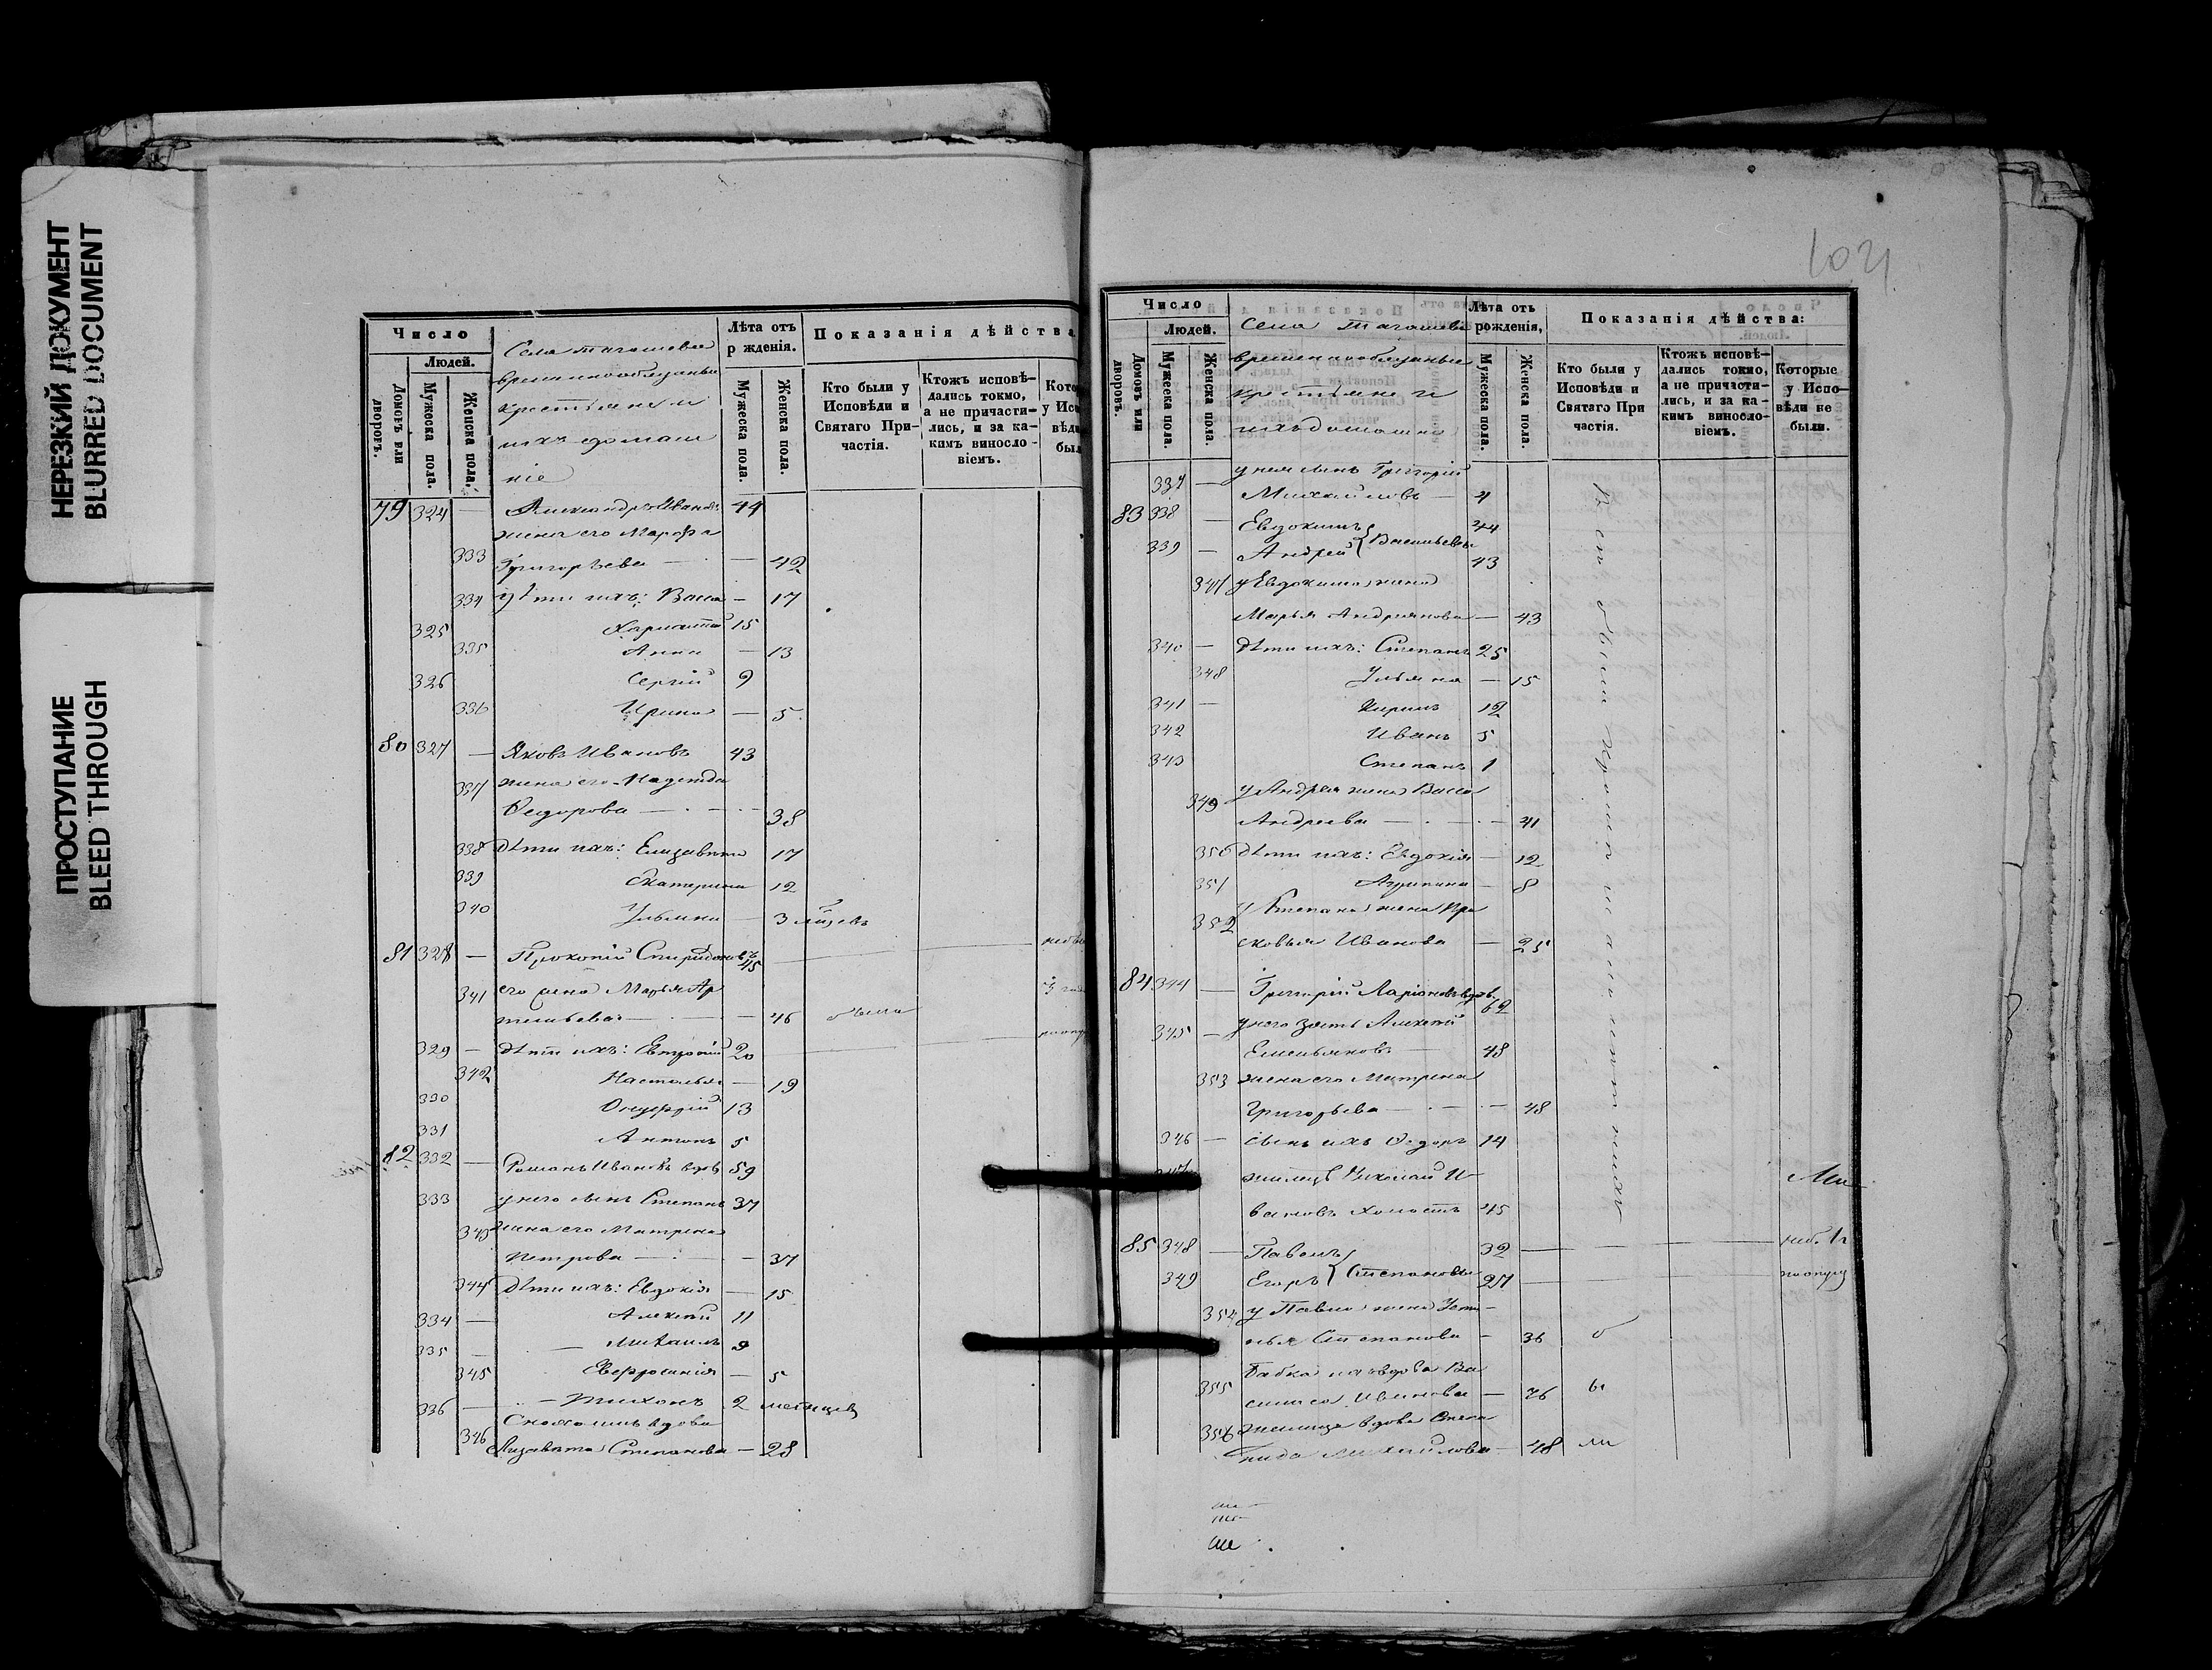 НЕРЕЗКИЙ ДОКУМЕНТ
BLURRED DOCUMENT
ПРОСТУПАНИЕ
BLEED THROUGH
Число
Людей.
Домовъ или дворовъ.
Мужеска пола.
Женска пола.
Села
временнообязанные
крестьяне и
ихъ домаш
ніе
Лѣта отъ
р жденія.
Мужеска пола.
Женска пола.
Показанія дѣйства
Кто были у
Исповѣди и
Святаго При-
частія.
Ктожъ исповѣ-
дались токмо,
а не причасти-
лись, и за ка-
кимъ виносло-
віемъ.
79 324 — Александръ Ивановъ 44
жена его Марфа
333 Григорьева — — 42
334 Дѣти ихъ: Васса — 17
325 15
335 Анна — 13
326 Сергій 9
336 Ирина — 5
80 327 — Яковъ Ивановъ 43
337 жена его Надежда
Федорова — — 38
338 Дѣти ихъ: Елизавета 17
339 Екатерина 12
340 Ульяна — 3
81 328 — Прокопій Спиридоновъ 45
341 его жена Марья Ар
— — 46 была
329 — Дѣти ихъ: 20
342 Настасья — 19
330 Онуфрій 13
331 Антонъ 5
82 332 — Романъ Ивановъ вдовъ 59
333 у него сынъ Степанъ 37
343 жена его Матрена
Петрова — — 37
344 Дѣти ихъ: Евдокія — 15
334 — Алексѣй 11
335 — Михаилъ 9
345 Евфросинія — 5
336 — Тихонъ 2 месяцевъ
346 вдова
Лизавета Степанова — 28
1021
Число
Людей.
Домовъ или дворовъ.
Мужеска пола.
Женска пола.
Села
временнообязанные
крестьяне и
ихъ домашніе
Лѣта отъ
рожденія,
Мужеска пола.
Женска пола.
Показанія дѣйства:
Кто были у
Исповѣди и
Святаго При
частія.
Ктожъ исповѣ-
дались токмо,
а не причасти-
лись, и за ка-
кимъ виносло-
віемъ.
Которые
у Испо-
вѣди не
были.
у нея сынъ Григорій
337 — Михайловъ — 4
83 338 — Евдокимъ 44
339 — Андрей } Васильевы 43
347 у Евдокима жена
Марья Андриянова — 43
340 — Дѣти ихъ: Степанъ 25
348 Ульяна — 15
341 — Кирилъ 12
342 Иванъ 5
343 Степанъ 1
349 у Андрея жена Васса
Андреева — — 41
350 Дѣти ихъ: Евдокія — 12
351 Агрипина — 8
352 у Степана жена Пра
сковья Иванова — 25
84 344 — Григорій Ларіоновъ вдовъ 62
345 — у него зять Алексѣй
Емельяновъ 48
353 жена его Матрена
Григорьева — — 48
346 — сынъ ихъ Федоръ 14
347 жилецъ Николай И-
вановъ холостъ 45
85 348 — Павелъ 32
349 Егоръ } Степановы 27
354 у Павла жена Усти-
нья Степанова — 36 б
355 Бабка ихъ вдова Ва
силиса Иванова — 76 ы
356 жилица вдова Степа
нида Михайлова — 48 ли